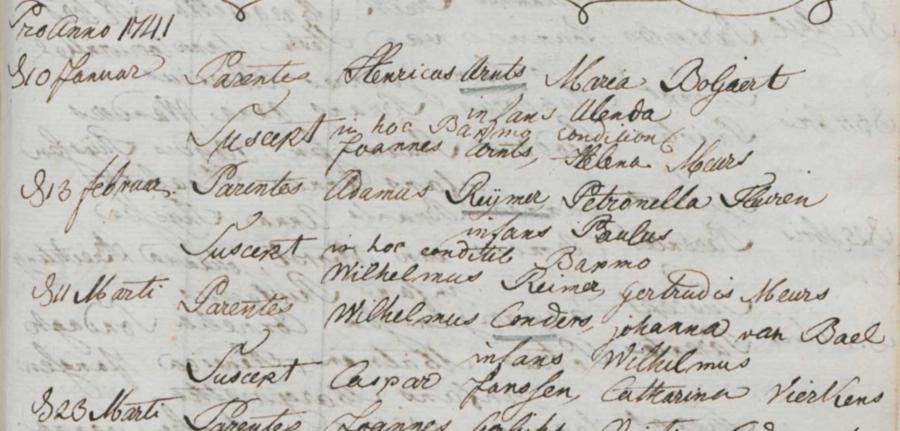 Pro Anno 1741
d 10 Januar Parentes Henricus Arnts Maria Boljaert
infans Alenda
Suscept in hoc Bapmo condition
Joannes Arnts, Helena Meurs
d 13 februar. Parentes Adamus Reÿmer, Petronella
infans Paulus
Suscept in hoc condit Bapmo
Wilhelmus Reimer, Gertrudis Meurs
d 11 Marti Parentes Wilhelmus Conders, Johanna van Bael
infans Wilhelmus
Suscept Caspar Janssen, Catharina Vierkens
d 23 Marti Parentes Joannes